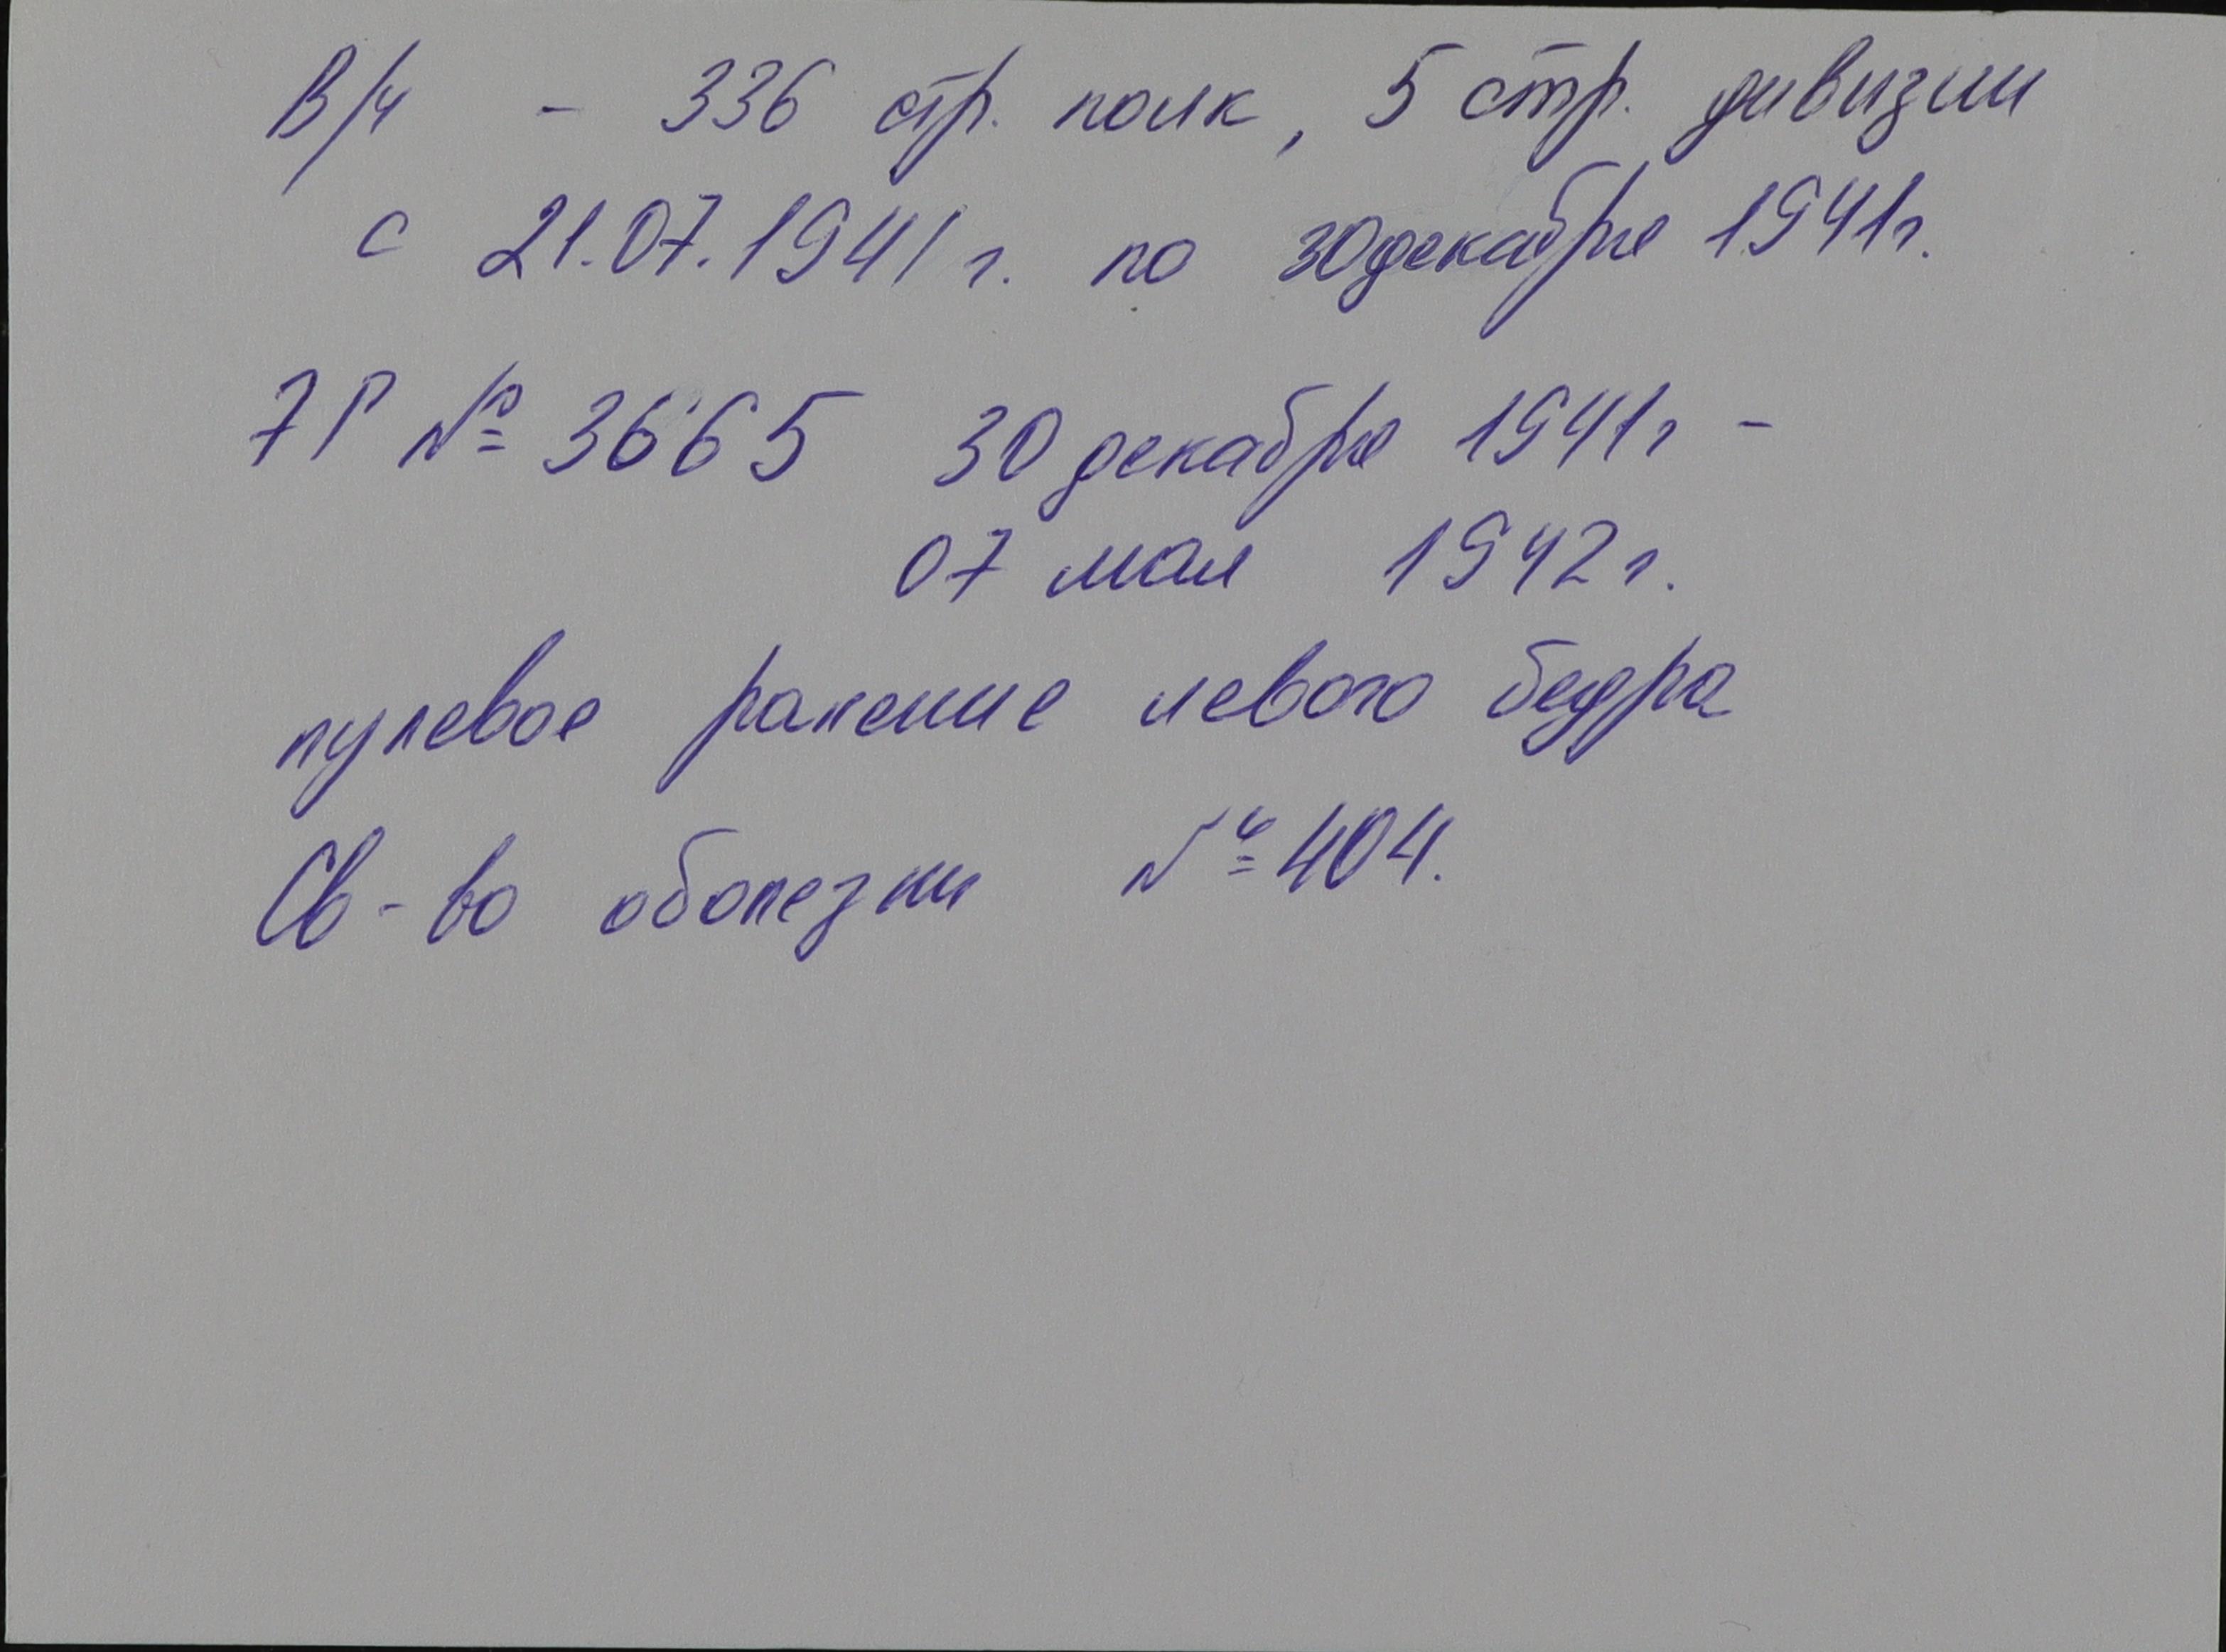 В/ч - 336 стр. полк, 5 стр. дивизии
с 21.07.1941 г. по 30 декабря 1941г.
ЭГ № 3665 30 декабря 1941г -
07 мая 1942 г.
пулевое ранение левого бедра
Св-во о болезни № 404.